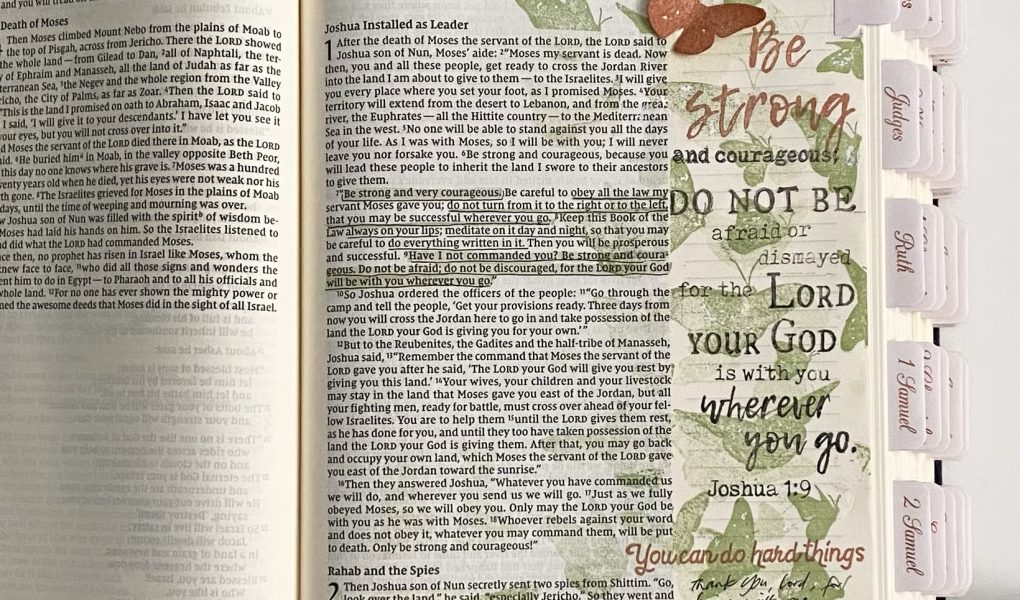 and you will
Death of Moses
Then Moses climbed Mount Nebo from the plains of Moab to
the top of Pisgah, across from Jericho. There the LORD showed
the whole land — from Gilead to Dan, ²all of Naphtali, the ter-
y of Ephraim and Manasseh, all the land of Judah as far as the
terranean Sea, ³the Negev and the whole region from the Valley
richo, the City of Palms, as far as Zoar. ⁴Then the LORD said to
"This is the land I promised on oath to Abraham, Isaac and Jacob
I said, 'I will give it to your descendants.' I have let you see it
your eyes, but you will not cross over into it."
d Moses the servant of the LORD died there in Moab, as the LORD
aid. ⁶He buried himᵃ in Moab, in the valley opposite Beth Peor,
this day no one knows where his grave is. ⁷Moses was a hundred
wenty years old when he died, yet his eyes were not weak nor his
th gone. ⁸The Israelites grieved for Moses in the plains of Moab
days, until the time of weeping and mourning was over.
w Joshua son of Nun was filled with the spiritᵇ of wisdom be-
Moses had laid his hands on him. So the Israelites listened to
d did what the LORD had commanded Moses.
ce then, no prophet has risen in Israel like Moses, whom the
knew face to face, ¹¹who did all those signs and wonders the
ent him to do in Egypt — to Pharaoh and to all his officials and
whole land. ¹²For no one has ever shown the mighty power or
med the awesome deeds that Moses did in the sight of all Israel.
Joshua Installed as Leader
1 After the death of Moses the servant of the LORD, the LORD said to
Joshua son of Nun, Moses' aide: ²"Moses my servant is dead. Now
then, you and all these people, get ready to cross the Jordan River
into the land I am about to give to them — to the Israelites. ³I will give
you every place where you set your foot, as I promised Moses. ⁴Your
territory will extend from the desert to Lebanon, and from the great
river, the Euphrates — all the Hittite country — to the Mediterranean
Sea in the west. ⁵No one will be able to stand against you all the days
of your life. As I was with Moses, so I will be with you; I will never
leave you nor forsake you. ⁶Be strong and courageous, because you
will lead these people to inherit the land I swore to their ancestors
to give them.
⁷"Be strong and very courageous. Be careful to obey all the law my
servant Moses gave you; do not turn from it to the right or to the left,
that you may be successful wherever you go. ⁸Keep this Book of the
Law always on your lips; meditate on it day and night, so that you may
be careful to do everything written in it. Then you will be prosperous
and successful. ⁹Have I not commanded you? Be strong and coura-
geous. Do not be afraid; do not be discouraged, for the LORD your God
will be with you wherever you go."
¹⁰So Joshua ordered the officers of the people: ¹¹"Go through the
camp and tell the people, 'Get your provisions ready. Three days from
now you will cross the Jordan here to go in and take possession of the
land the LORD your God is giving you for your own.'"
¹²But to the Reubenites, the Gadites and the half-tribe of Manasseh,
Joshua said, ¹³"Remember the command that Moses the servant of the
LORD gave you after he said, 'The LORD your God will give you rest by
giving you this land.' ¹⁴Your wives, your children and your livestock
may stay in the land that Moses gave you east of the Jordan, but all
your fighting men, ready for battle, must cross over ahead of your fel-
low Israelites. You are to help them ¹⁵until the LORD gives them rest,
as he has done for you, and until they too have taken possession of the
land the LORD your God is giving them. After that, you may go back
and occupy your own land, which Moses the servant of the LORD gave
you east of the Jordan toward the sunrise."
¹⁶Then they answered Joshua, "Whatever you have commanded us
we will do, and wherever you send us we will go. ¹⁷Just as we fully
obeyed Moses, so we will obey you. Only may the LORD your God be
with you as he was with Moses. ¹⁸Whoever rebels against your word
and does not obey it, whatever you may command them, will be put
to death. Only be strong and courageous!"
Rahab and the Spies
2 Then Joshua son of Nun secretly sent two spies from Shittim. "Go,
look over the land," he said, "especially Jericho." So they went and
Be
strong
and courageous;
DO NOT BE
afraid or
dismayed
for the LORD
YOUR GOD
is with you
wherever
you go.
Joshua 1:9
You can do hard things
Thank you, Lord, for
Judges
Ruth
1 Samuel
2 Samuel